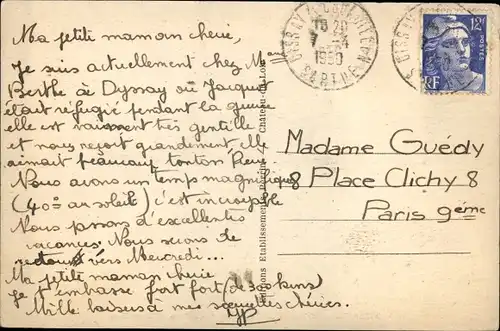 Ma petite maman chérie,
Je suis actuellement chez Mme
Berthe à Dyssay où Jacquot
était réfugié pendant la guerre
elle est vraiment très gentille
et nous reçoit grandement, elle
aimait beaucoup tonton René
Nous avons un temps magnifique
(40° au soleil) c'est incroyable
Nous passons d'excellentes
vacances. Nous serons de
retour vers Mercredi...
Ma petite maman chérie
Je t'embrasse fort fort (de 30 kms)
Mille baisers à mes soeurettes chéries.
JP
DISSAY S/ COURCILLON
15 20
7
1950
SARTHE
12F
RF
Editions Etablissements Château-du-Loir
Madame Guédy
8 Place Clichy 8
Paris 9ème